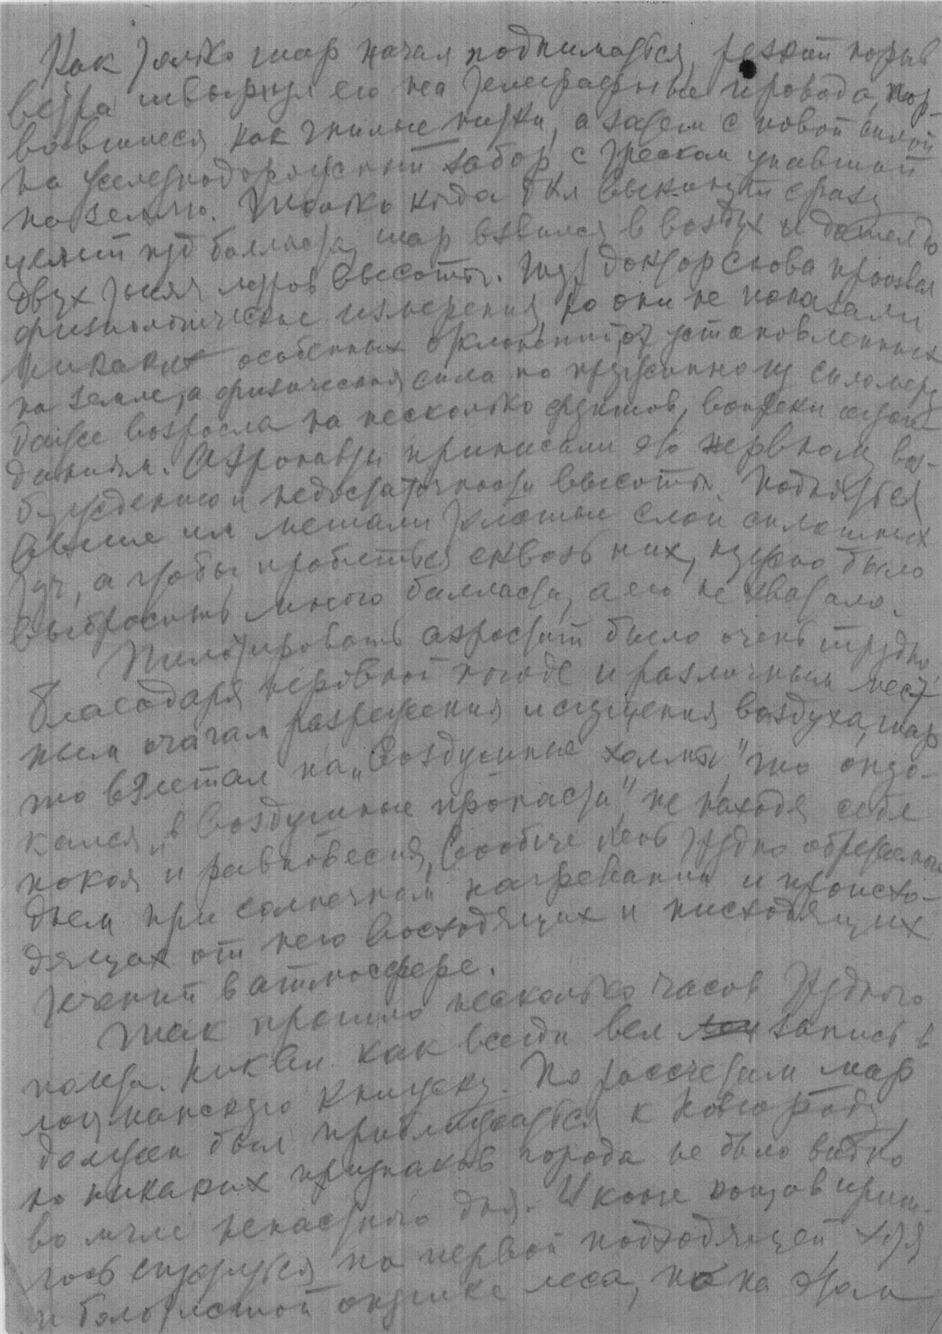 Как только шар начал подниматься, резкий порыв
ветра швырнул его на телеграфные провода, пор-
вавшиеся как гнилые нитки, а затем с новой силой
на железнодорожный забор, с треском упавший
на землю. Только когда был выкинут сразу
целый пуд балласта, шар взвился в воздух и достиг
двух тысяч метров высоты. Тут доктор снова произвел
физиологические измерения, но они не показали
никаких особенных отклонений от установленных
на земле, а физическая сила по пружинному силомеру
даже возросла на несколько фунтов, вопреки ожи-
даниям. Аэронавты приписали это нервному воз-
буждению и недостаточности высоты. Подняться
выше им мешали толстые слои сплошных
туч, а чтобы пробиться сквозь них, нужно было
выбросить много балласта, а его не хватало.
Пилотировать аэростат было очень трудно,
благодаря неровной погоде и различным мест-
ным очагам разрежения и сгущения воздуха, шар
то взлетал на „воздушные холмы", то опус-
кался в „воздушные пропасти", не находя себе
покоя и равновесия,
днем при солнечном нагревании и происхо-
дящих от него восходящих и нисходящих
течений в атмосфере.
Так прошло несколько часов трудного
полета. как всегда вел запись в
лоцманскую книжку. По рассчетам шар
должен был приближаться к Новгороду,
но никаких признаков города не было видно
во мгле ненастного дня. И
спуститься на первой подходящей, хотя
и болотистой опушке леса, но на этом